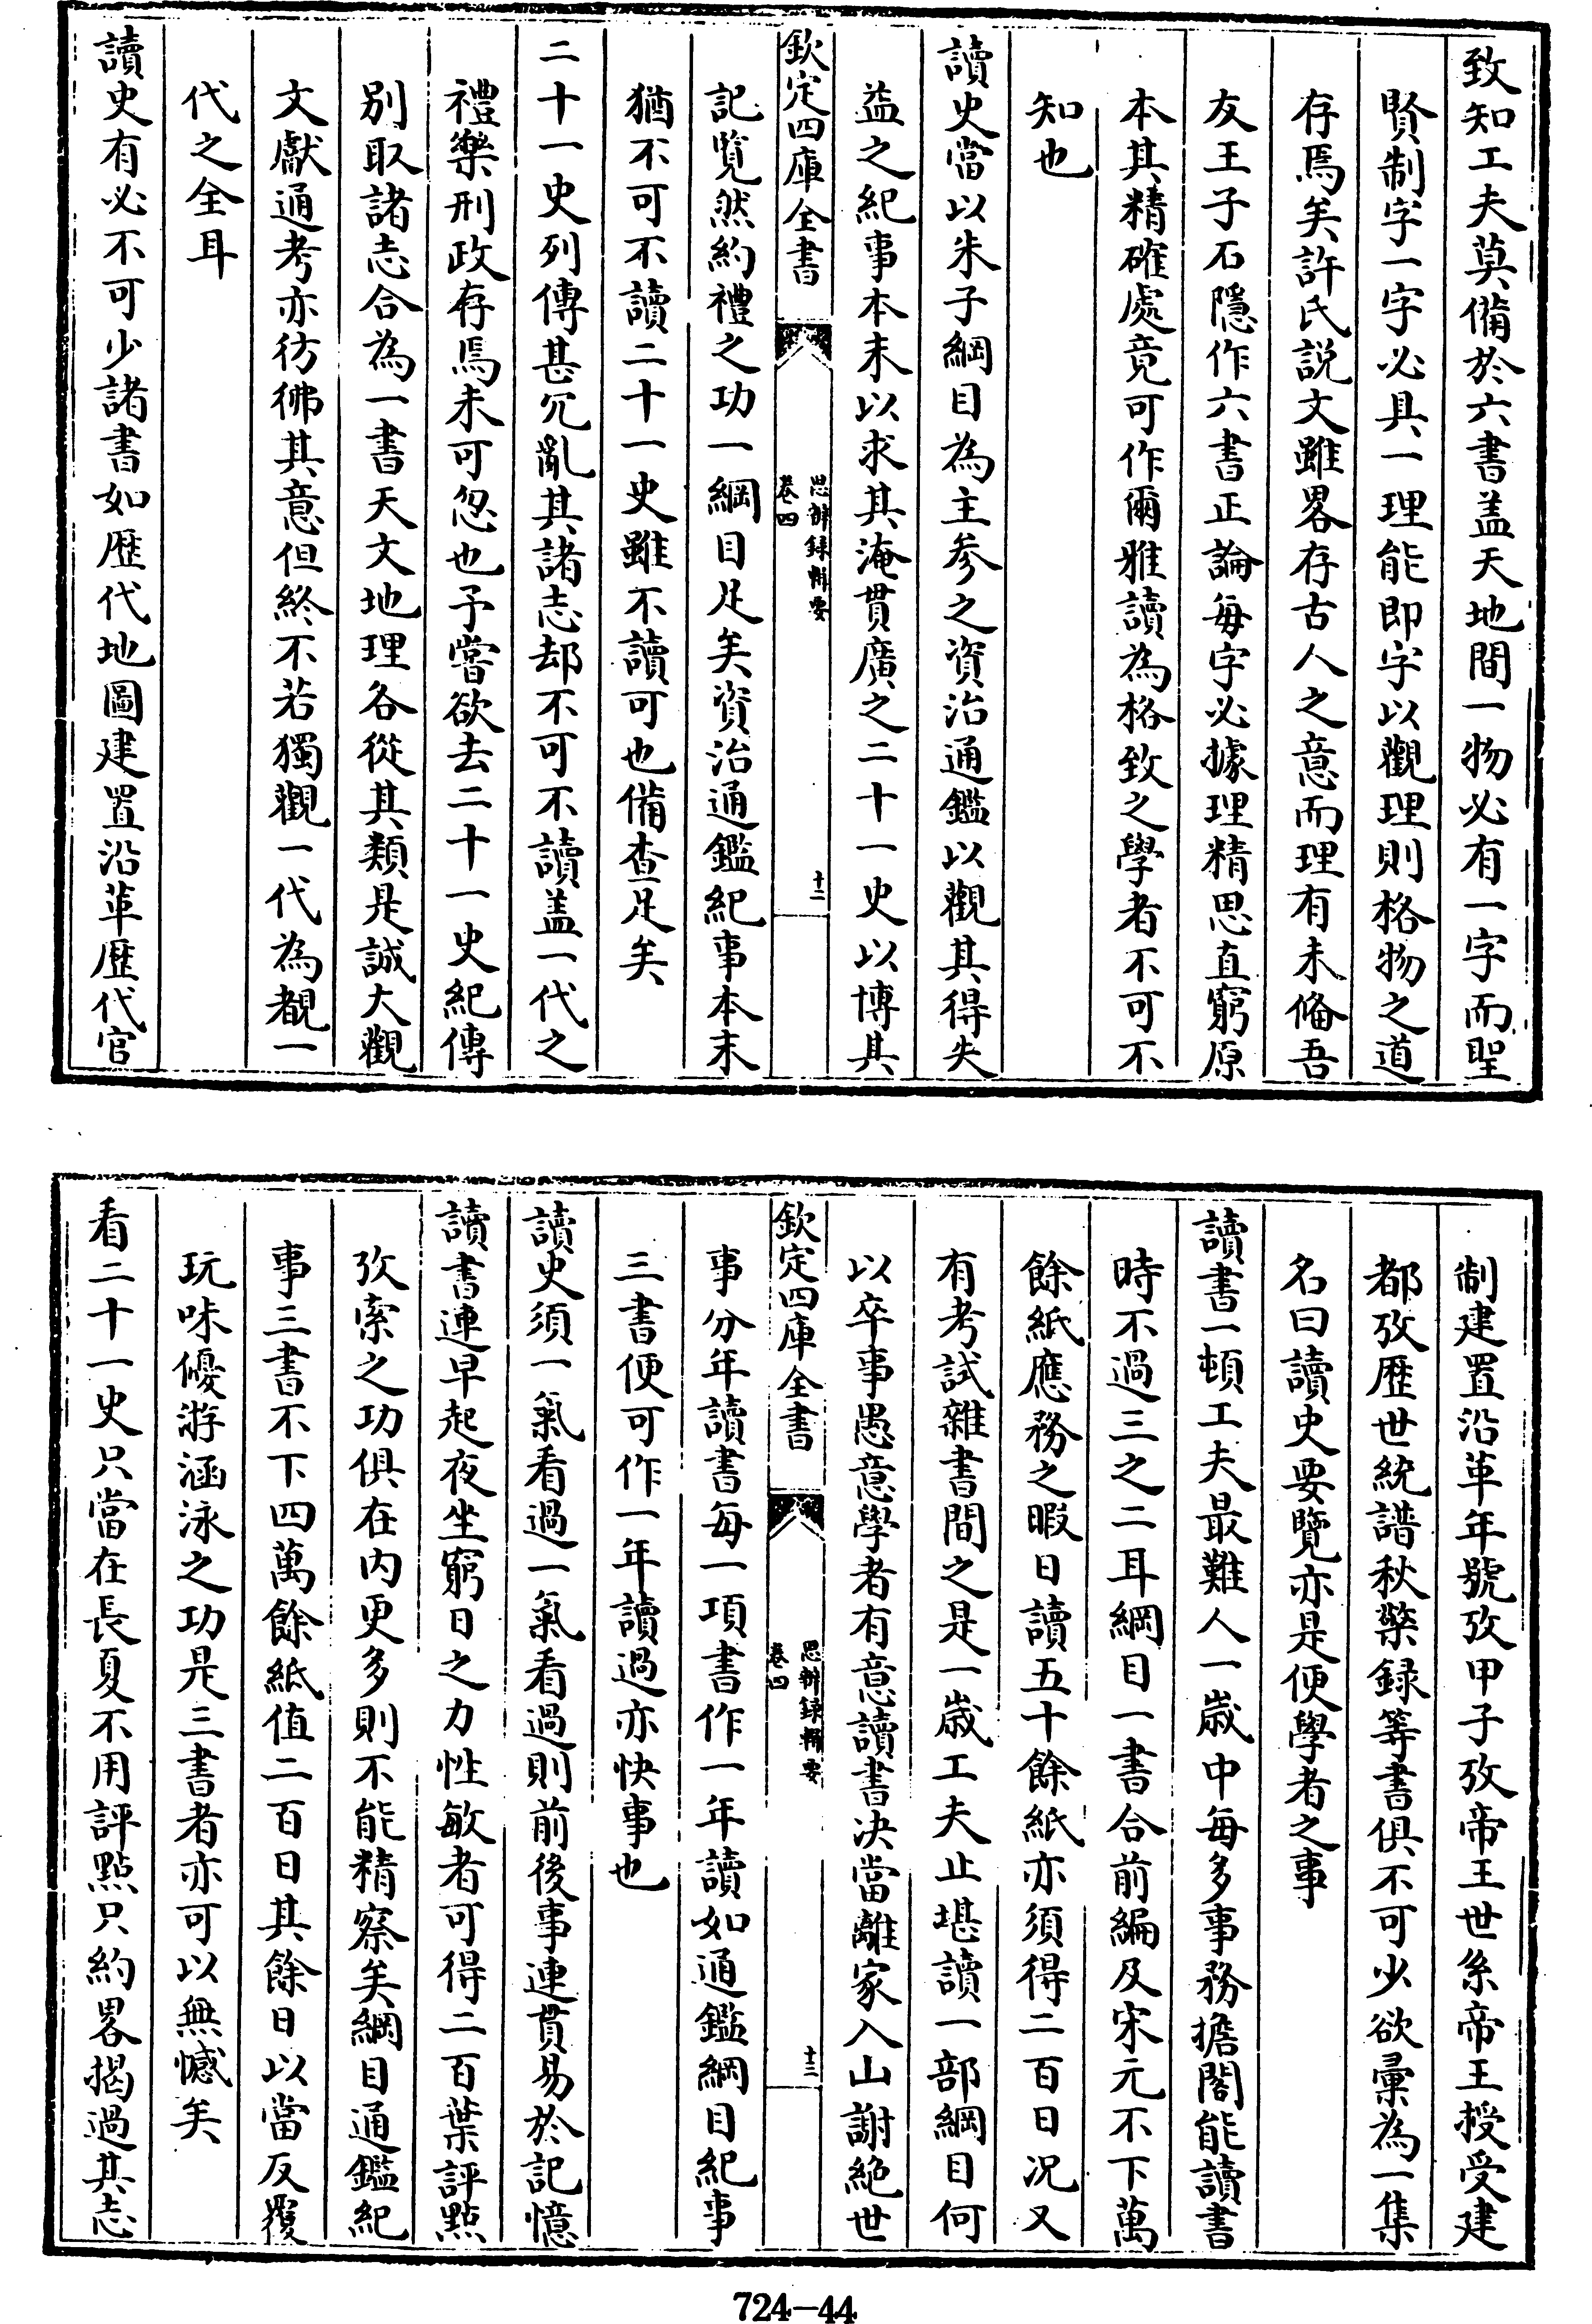 致知工夫莫備於六書盖天地間一物必有一字而聖
賢制字一字必具一理能即字以觀理則格物之道
存焉矣許氏説文雖畧存古人之意而理有未備吾
友王子石隱作六書正論每字必據理精思直窮原
本其精確處竟可作爾雅讀為格致之學者不可不
知也
讀史當以朱子綱目為主參之資治通鑑以觀其得失
益之紀事本末以求其淹貫廣之二十一史以博其
欽定四庫全書
思辨録輯要
卷四
十二
記覽然約禮之功一綱目足矣資治通鑑紀事本末
猶不可不讀二十一史雖不讀可也備查足矣
二十一史列傳甚冗亂其諸志却不可不讀盖一代之
禮樂刑政存焉未可忽也予嘗欲去二十一史紀傳
别取諸志合為一書天文地理各從其類是誠大觀
文獻通考亦彷彿其意但終不若獨觀一代為覩一
代之全耳
讀史有必不可少諸書如歴代地圖建置沿革歴代官
制建置沿革年號攷甲子攷帝王世系帝王授受建
都攷歴世統譜秋檠録等書俱不可少欲彚為一集
名曰讀史要覽亦是便學者之事
讀書一頓工夫最難人一歲中每多事務擔閣能讀書
時不過三之二耳綱目一書合前編及宋元不下萬
餘紙應務之暇日讀五十餘紙亦須得二百日况又
有考試雜書間之是一歲工夫止堪讀一部綱目何
以卒事愚意學者有意讀書决當離家入山謝絶世
欽定四庫全書
思辨録輯要
卷四
十三
事分年讀書每一項書作一年讀如通鑑綱目紀事
三書便可作一年讀過亦快事也
讀史須一氣看過一氣看過則前後事連貫易於記憶
讀書連早起夜坐窮日之力性敏者可得二百葉評點
攷索之功俱在内更多則不能精察矣綱目通鑑紀
事三書不下四萬餘紙值二百日其餘日以當反覆
玩味優游涵泳之功是三書者亦可以無憾矣
看二十一史只當在長夏不用評點只約畧揭過其志
724-44